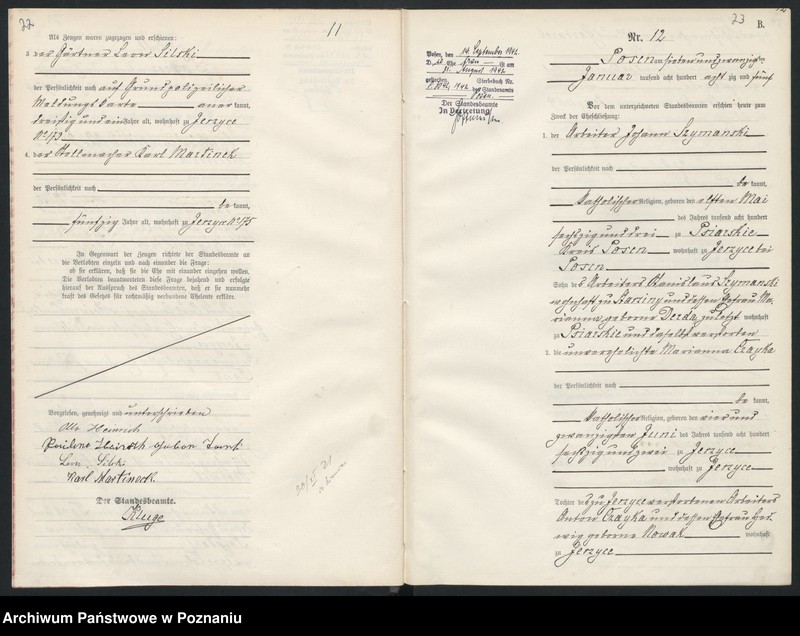 22
11
Als Zeugen waren zugezogen und erschienen:
3. der Gärtner Leon Silski
der Persönlichkeit nach auf Grund polizeilicher
Meldungskarte anerkannt,
dreißig und ein Jahre alt, wohnhaft zu Jerzyce
No 173
4. der Stellmacher Karl Martinek
der Persönlichkeit nach
be kannt,
fünfzig Jahre alt, wohnhaft zu Jerzyce No 175
In Gegenwart der Zeugen richtete der Standesbeamte an
die Verlobten einzeln und nach einander die Frage:
ob sie erklären, daß sie die Ehe mit einander eingehen wollen.
Die Verlobten beantworteten diese Frage bejahend und erfolgte
hierauf der Ausspruch des Standesbeamten, daß er sie nunmehr
kraft des Gesetzes für rechtmäßig verbundene Eheleute erkläre.
Vorgelesen, genehmigt und unterschrieben
Otto Heinrich
Pauline Heinrich geboren
Leon Silski
Karl Martineck
Der Standesbeamte.
Kluge
Posen, den 14. September 1942
31. August 1942
Sterbebuch Nr.
des Standesamts
Posen
Der Standesbeamte
In Vertretung
23
B.
Nr. 12
Posen am sieben und zwanzigsten
Januar tausend acht hundert acht zig und fünf
Vor dem unterzeichneten Standesbeamten erschienen heute zum
Zweck der Eheschließung:
1. der Arbeiter Johann Szymanski
der Persönlichkeit nach
be kannt,
katholischer Religion, geboren den elften Mai
des Jahres tausend acht hundert
sechszig und drei zu Psiarskie
Kreis Posen wohnhaft zu Jerzyce bei
Posen
Sohn des Arbeiters Stanislaus Szymanski
wohnhaft zu und dessen Ehefrau Ma-
rianna, geborne Derda, zuletzt wohnhaft
zu Psiarskie und daselbst verstorben
2. die unverehelichte Marianna Czayka
der Persönlichkeit nach
be kannt,
katholischer Religion, geboren den vier und
zwanzigsten Juni des Jahres tausend acht hundert
sechszig und zwei zu Jerzyce
wohnhaft zu Jerzyce
Tochter des zu Jerzyce verstorbenen Arbeiters
Anton Czayka und dessen Ehefrau Hed-
wig geborne Nowak wohnhaft
zu Jerzyce
Archiwum Państwowe w Poznaniu